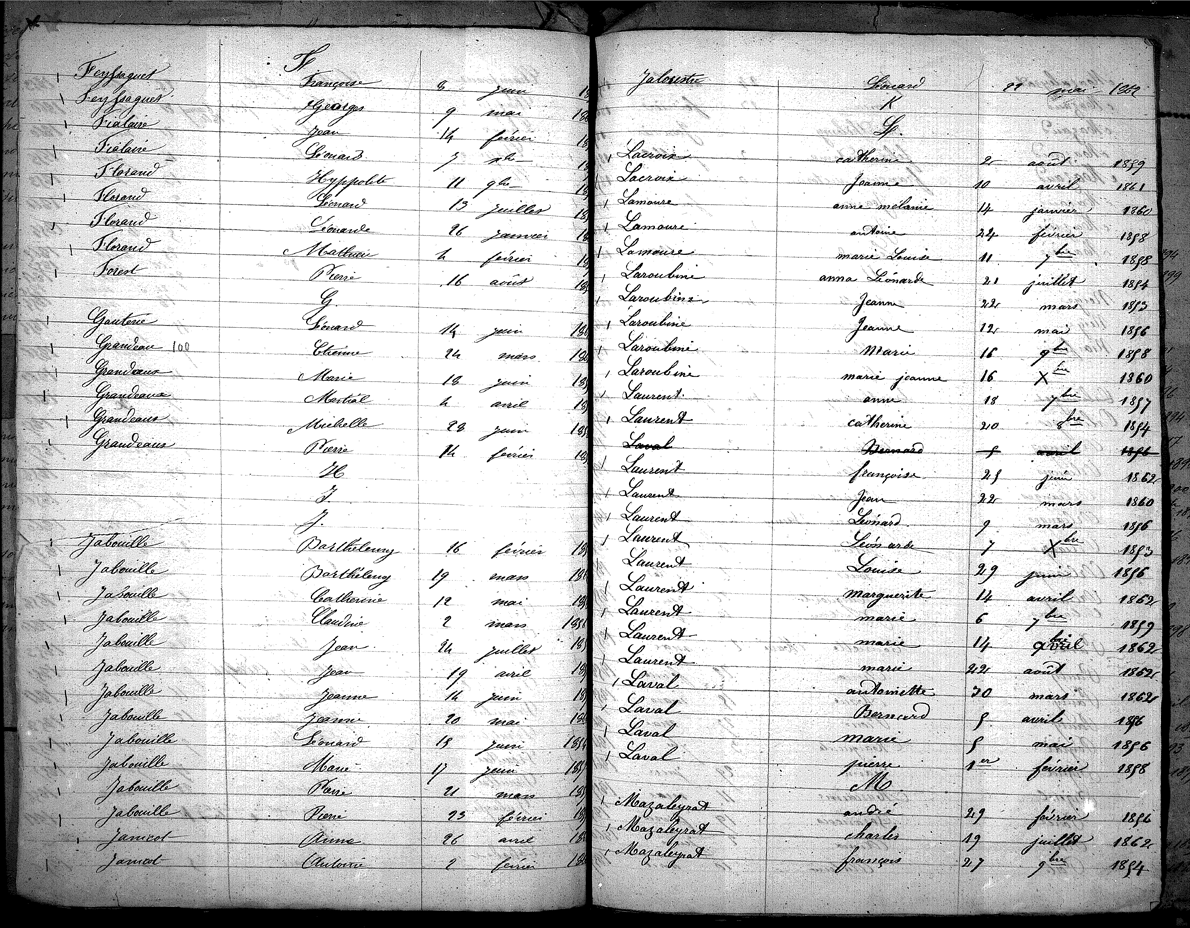 F
Feyssaguet Françoise 8 juin
Feyssaguet Georges 9 mai
Fialaire Jean 14 février
Fialaire Léonard 7 xbre
Florand Hyppolite 11 9bre
Florand Léonard 13 juillet
Florand Léonarde 26 janvier
Florand Mathieu 4 février
Forest Pierre 16 août
G.
Gauterie Léonard 14 juin
Grandeau 100 Etienne 24 mars
Grandeaux Marie 18 juin
Grandeaux Martial 4 avril
Grandeaux Michelle 28 juin
Grandeaux Pierre 14 février
H
I
J.
Jabouille Barthélemy 16 février
Jabouille Barthélemy 19 mars
Jabouille Catherine 12 mai
Jabouille Claudine 2 mars
Jabouille Jean 24 juillet
Jabouille Jean 19 avril
Jabouille Jeanne 14 juin
Jabouille Jeanne 20 mai
Jabouille Léonard 15 juin
Jabouille Marie 17 juin
Jabouille Pierre 21 mars
Jabouille Pierre 23 février
Janicot Anna 26 avril
Janicot Antoine 2 février
Léonard mai
K
L.
Lacroix catherine 2 août 1859
Lacroix Jeanne 10 avril 1861
Lamoure anne mélanie 14 janvier 1860
Lamoure antoine 24 février 1858
Lamoure marie Louise 11 7bre 1858
Laroubine anna Léonarde 21 juillet 1854
Laroubine Jeanne 22 mars 1853
Laroubine Jeanne 12 mai 1856
Laroubine Marie 16 9bre 1858
Laroubine marie jeanne 16 Xbre 1860
Laurent anne 18 7bre 1857
Laurent catherine 20 8bre 1854
Laval Bernard 5 avril 1856
Laurent françoise 25 juin 1862
Laurent Jean 22 mars 1860
Laurent Léonard 9 mars 1856
Laurent Léonarde 7 Xbre 1853
Laurent Louise 29 juin 1856
Laurent marguerite 14 avril 1862
Laurent marie 6 7bre 1859
Laurent marie 14 avril 1862
Laurent marie 22 août 1862
Laval antoinette 30 mars 1862
Laval Bernard 5 avril 1856
Laval marie 5 mai 1856
Laval pierre 1er février 1858
M
Mazaleyrat andré 29 février 1856
Mazaleyrat charles 19 juillet 1862
Mazaleyrat françois 27 9bre 1854